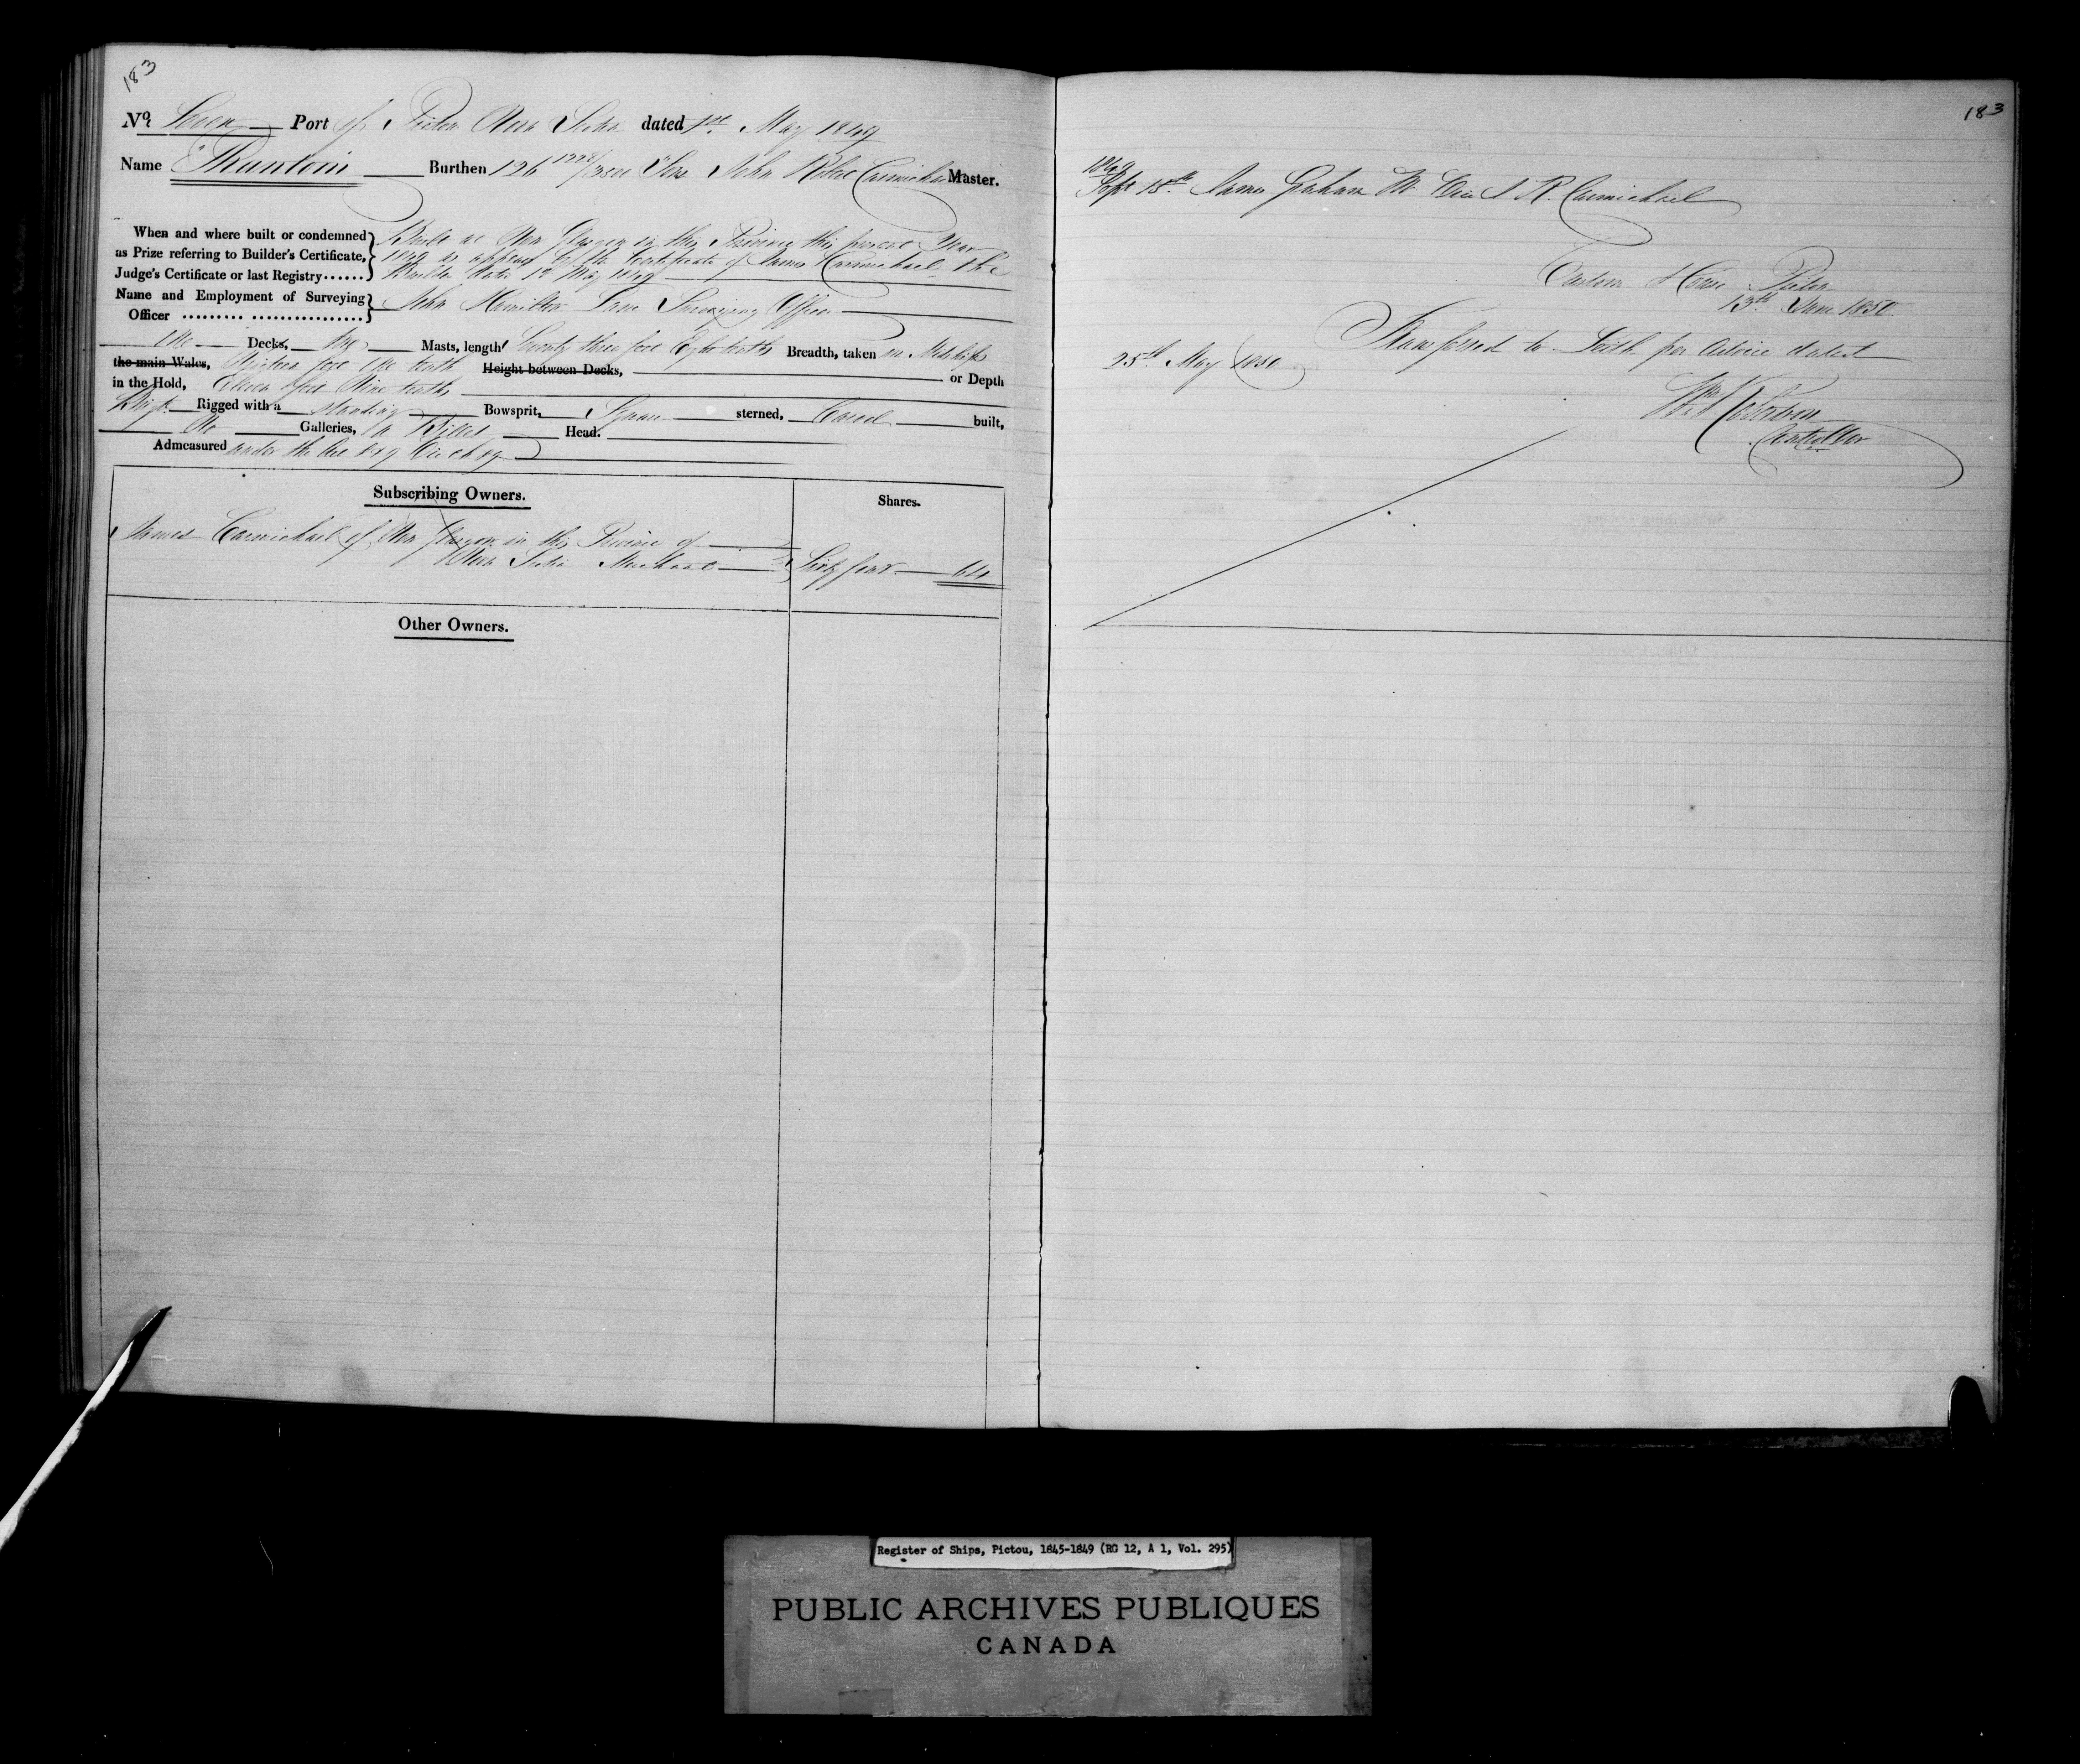 183
No. Seven Port of Pictou Nova Scotia dated 1st May 1849
Name "Thuntoni" Burthen 126 1228/3500 Tons John Robt Carmichael Master.
When and where built or condemned as Prize referring to Builder's Certificate, Judge's Certificate or last Registry......
Built at New Glasgow in this Province this present Year
1849 as appears by the Certificate of James Carmichael the
Builder dated 1st May 1849
Name and Employment of Surveying Officer ......... ................
John Hamilton Lane Surveying Officer
One Decks, Two Masts, length Seventy three feet Eight tenths Breadth, taken in Midships
the main Wales, feet One tenth Height between Decks, or Depth
in the Hold, Eleven feet Nine tenths
Brigt Rigged with a standing Bowsprit, Square sterned, Carvel built,
No Galleries, a Billet Head.
Admeasured under the Act 8 & 9 Vic ch 89
Subscribing Owners.
Shares.
James Carmichael of New Glasgow in this Province of
Nova Scotia Merchant Sixty four 64
Other Owners.
183
1849
Sept 15th James Graham Mr. Vice J. R. Carmichael
Custom House Pictou
13th June 1850
Transferred to Leith per Advice dated
25th May 1850
Wm Robertson
Controller
Register of Ships, Pictou, 1845-1849 (RG 12, A 1, Vol. 295)
PUBLIC ARCHIVES PUBLIQUES
CANADA